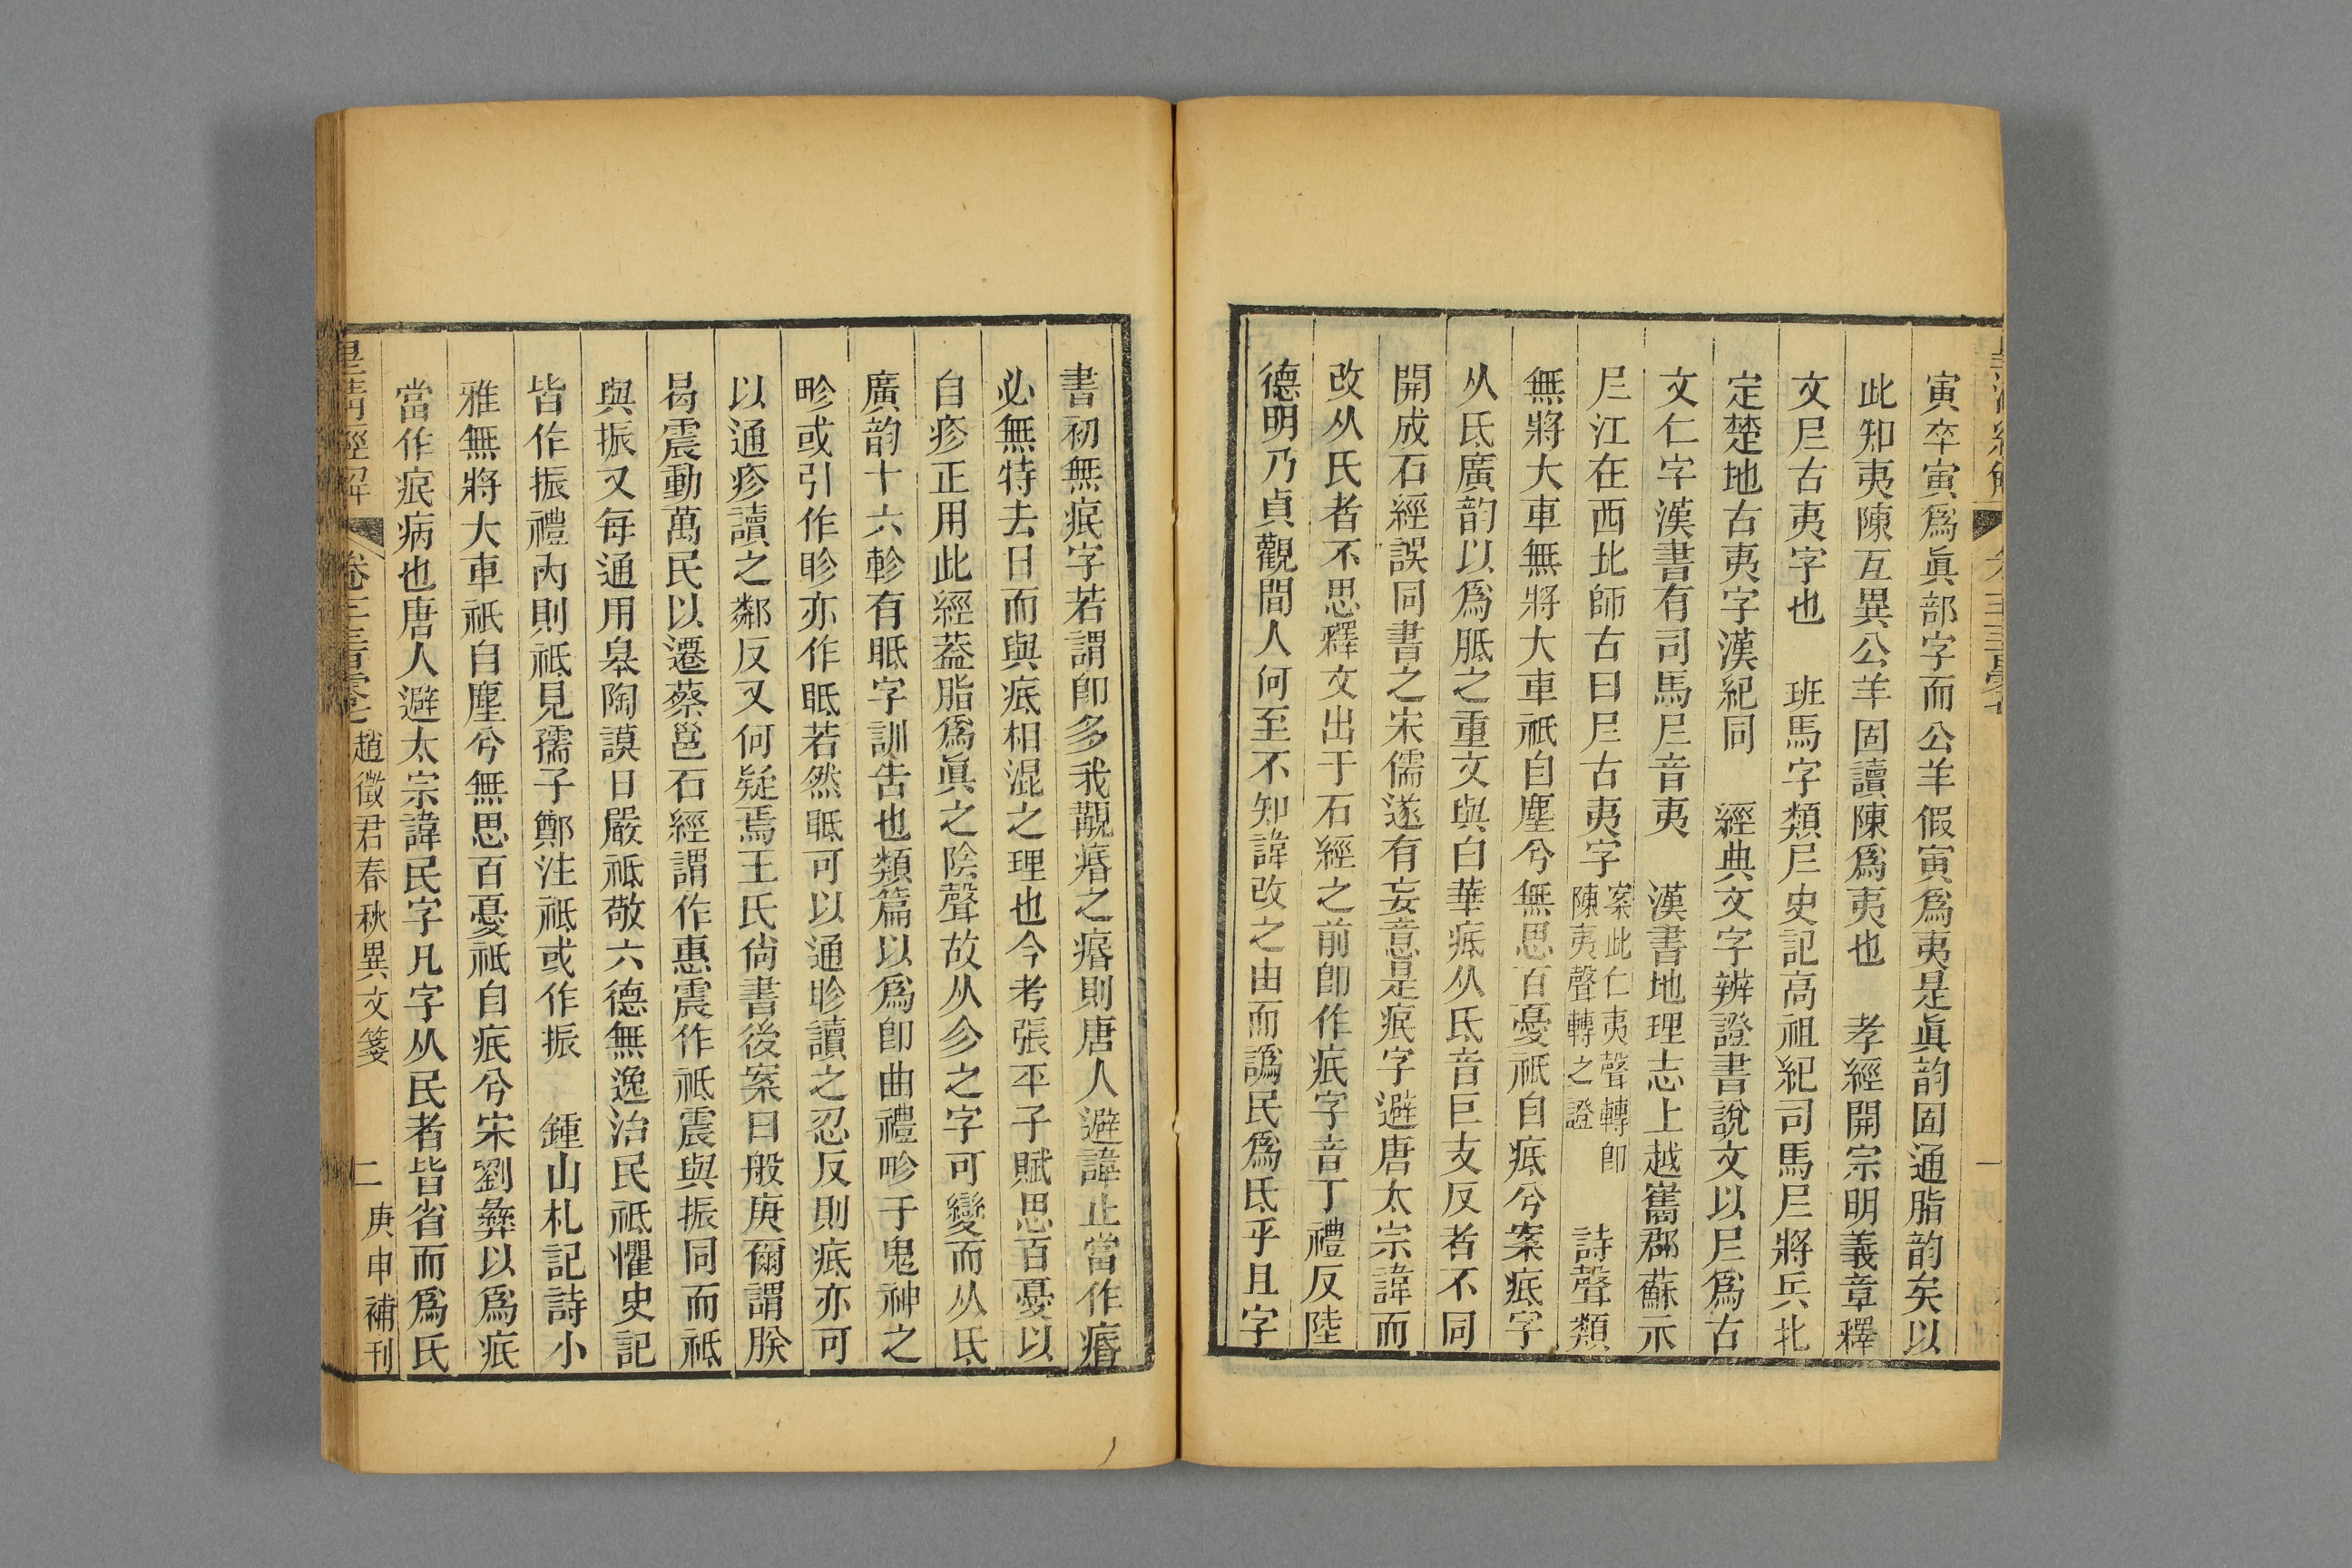 寅卒寅爲眞部字而公羊假寅爲夷是眞韵固通脂韵矣以
此知夷陳互異公羊固讀陳爲夷也　孝經開宗明義章釋
文𡰥古夷字也　班馬字類𡰥史記高祖紀司馬𡰥將兵北
定楚地古夷字漢紀同　經典文字辨證書說文以𡰥爲古
文仁字漢書有司馬𡰥音夷　漢書地理志上越嶲郡蘇示
𡰥江在西北師古曰𡰥古夷字案此仁夷聲轉卽陳夷聲轉之證　詩聲類
無將大車無將大車祇自塵兮無思百憂祇自疧兮案疧字
从氐廣韵以爲胝之重文與白華疧从氏音巨支反者不同
開成石經誤同書之宋儒遂有妄意是痻字避唐太宗諱而
改从氏者不思釋文出于石經之前卽作疧字音丁禮反陸
德明乃貞觀間人何至不知諱改之由而譌民爲氐乎且字
書初無痻字若謂卽多我覯痻之痻則唐人避諱止當作㾌
必無特去日而與疧相混之理也今考張平子賦思百憂以
自疹正用此經蓋脂爲眞之陰聲故从㐱之字可變而从氐
廣韵十六軫有胝字訓告也類篇以爲卽曲禮畛于鬼神之
畛或引作聄亦作眡若然眡可以通聄讀之忍反則疧亦可
以通疹讀之鄰反又何疑焉王氏尙書後案曰般庚爾謂朕
曷震動萬民以遷蔡邕石經謂作惠震作祗震與振同而祗
與振又每通用皋陶謨日嚴祗敬六德無逸治民祗懼史記
皆作振禮內則祗見孺子鄭注祗或作振　鍾山札記詩小
雅無將大車祇自塵兮無思百憂祇自疧兮宋劉彝以爲疧
當作痻病也唐人避太宗諱民字凡字从民者皆省而爲氏
皇淸經解　趙徵君春秋異文箋　二　庚申補刊